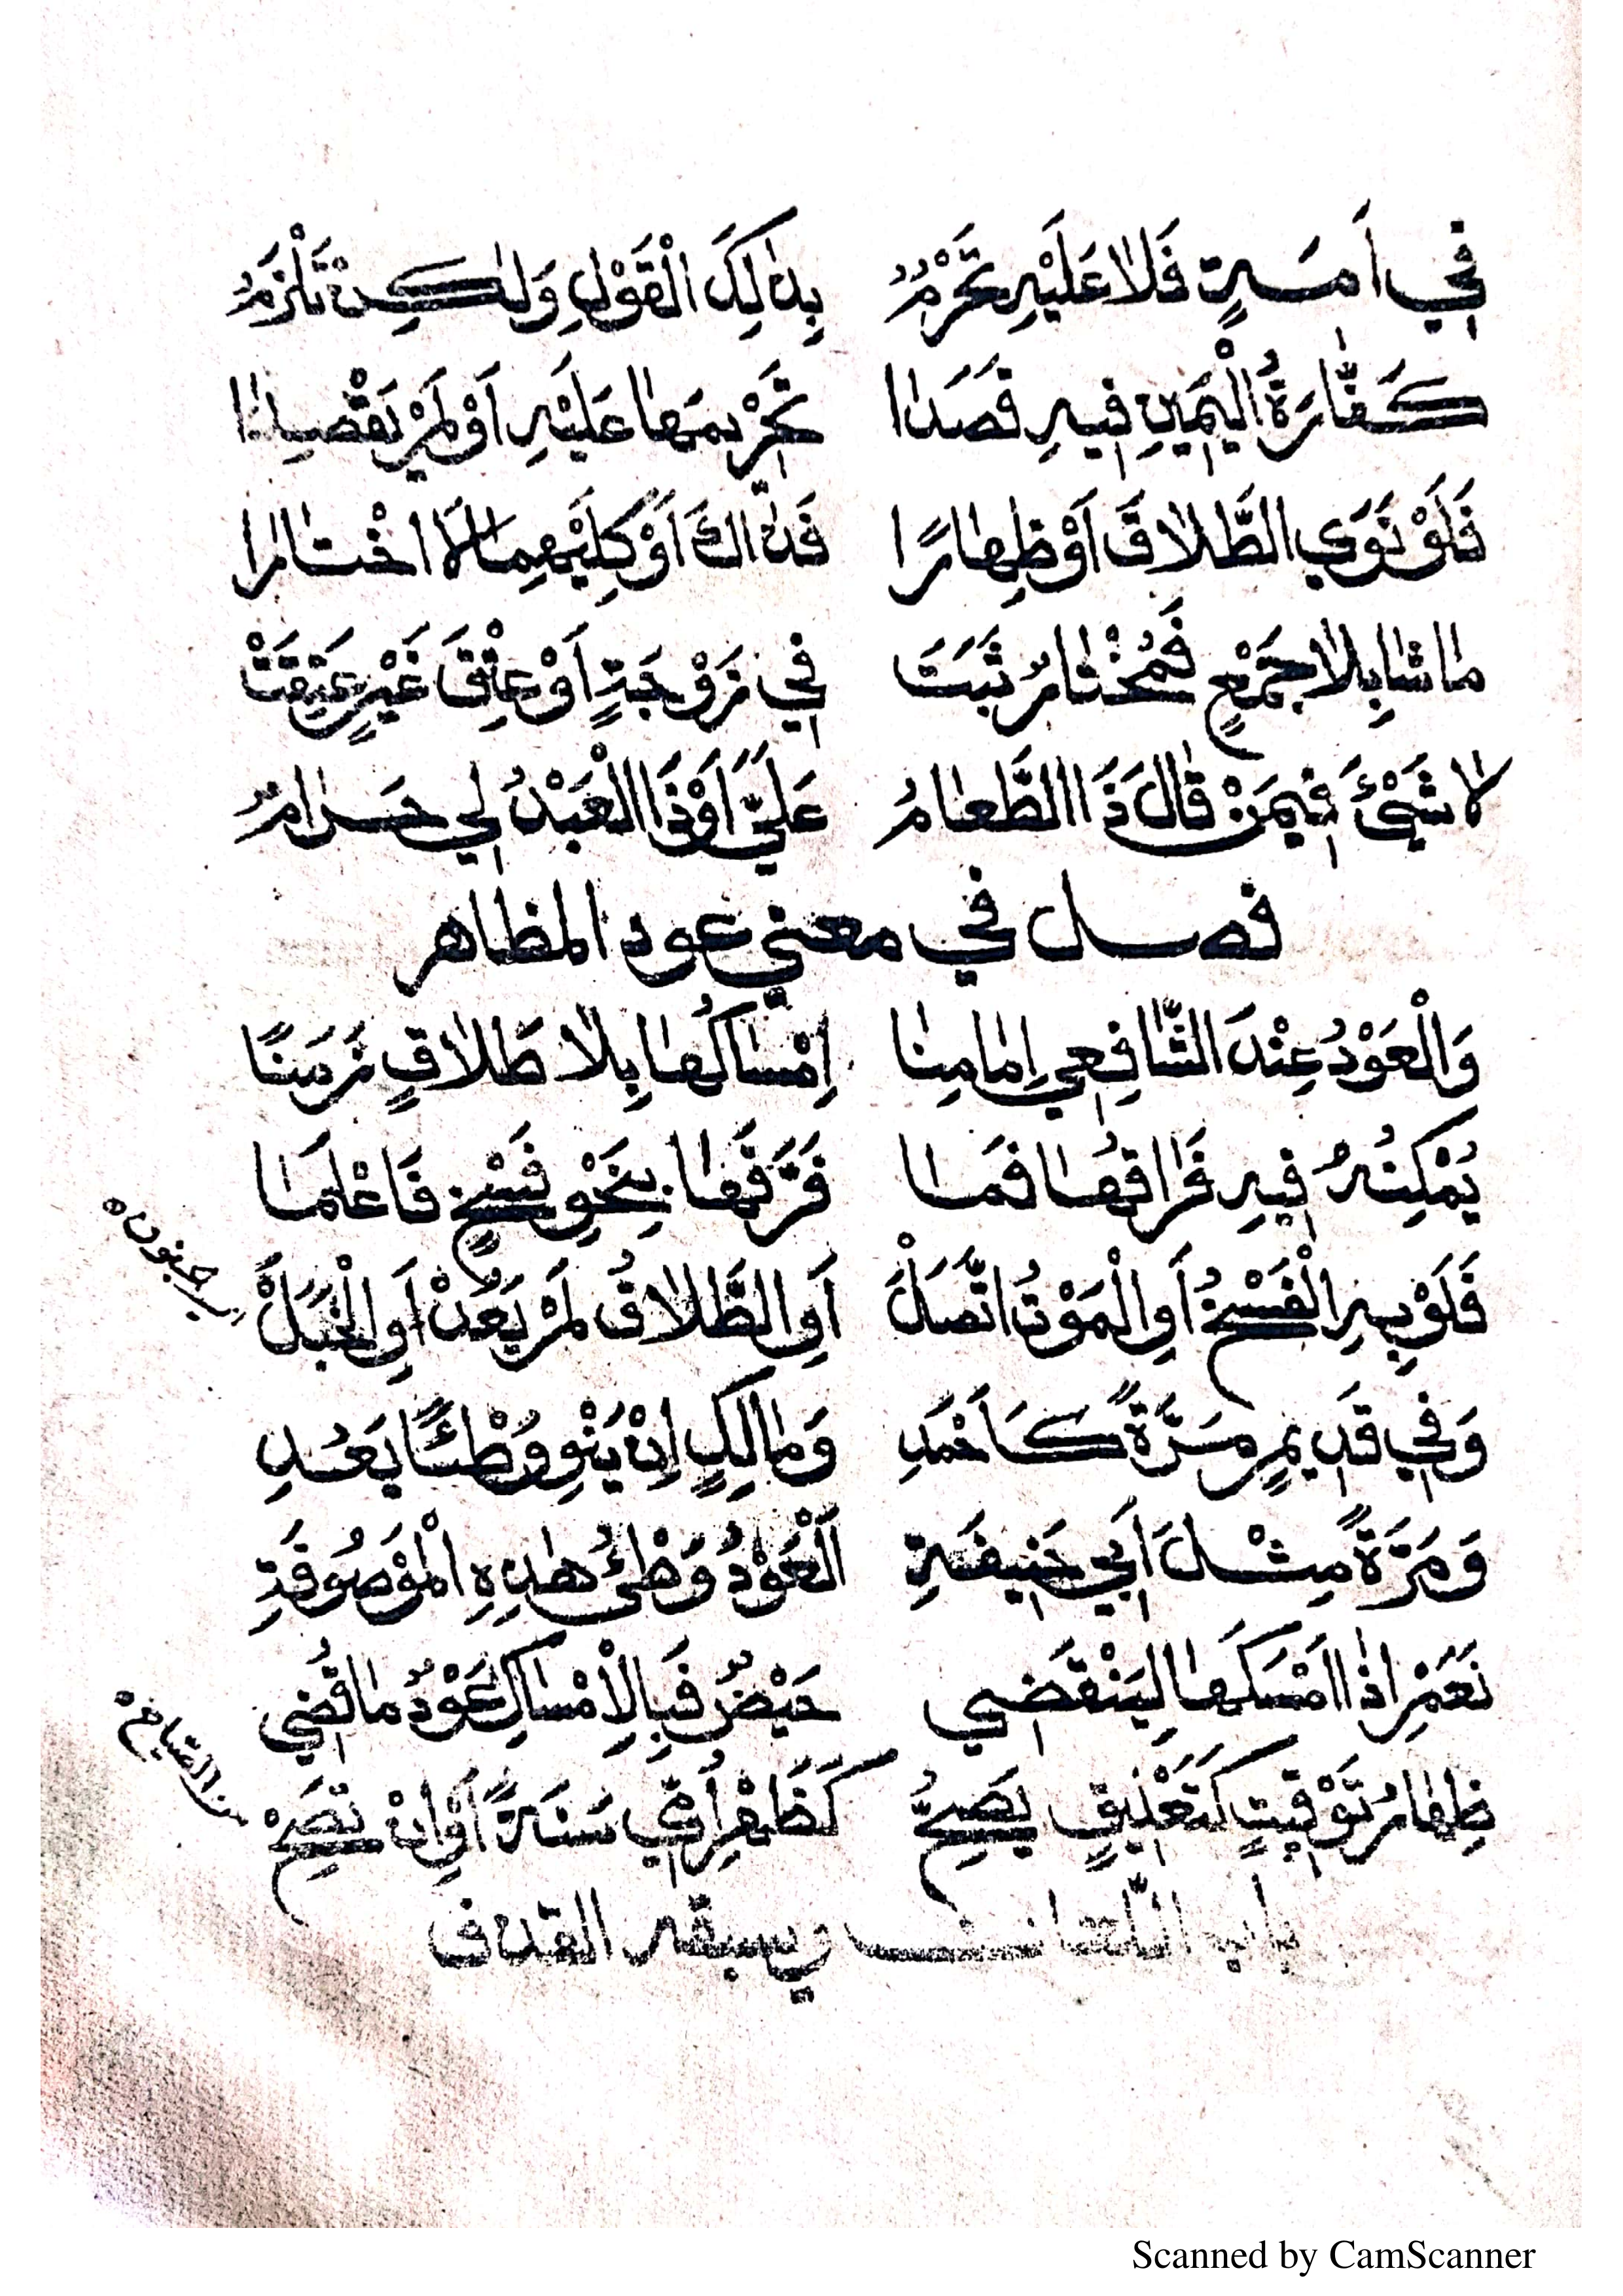 فِي اَمَةٍ فَلَا عَلَيْهِ تَحْرُمُ بِذَالِكَ الْقَوْلِ وَلٰكِنْ تَلْزَمُ
كَفَّارَةُ الْيَمِينِ فِيهِ قَصَدَا تَحْرِيمَهَا عَلَيْهِ اَوْ لَمْ يَقْصِدَا
فَلَوْ نَوَي الطَّلَاقَ اَوْ ظِهَارًا فَذَاكَ اَوْ كِلَيْهِمَا لَا اخْتَارَا
مَا شَا بِلَا جَمْعٍ فَمُخْتَارُ ثَبَتَ فِي زَوْجَةٍ اَوْ عِتْقَ غَيْرٍ عَتِقَتْ
لَا شَيْئَ فِيمَنْ قَالَ ذَا الطَّعَامُ عَلَيَّ اَوْ ذَا الْعَبْدُ لِي حَرَامُ
فصل في معني عود المظاهر
وَالْعَوْدُ عِنْدَ الشَّافِعِي اِمَامِنَا اِمْسَاكُهَا بِلَا طَلَاقٍ زَمَنًا
يُمْكِنُهُ فِيهِ فَرَاقُهَا فَمَا فَرَّقَهَا بِنَحْوِ فَسْخٍ فَاعْلَمَا
فَلَوْ بِهِ الْفَسْخُ اَوِ الْمَوْتُ اتَّصَلْ اَوِ الطَّلَاقُ لَمْ يَعُدْ اَوِ الْخَبَلْ
جنونه
وَفِي قَدِيمٍ مَرَّةً كَاَحْمَدِ وَمَالِكٍ اِنْ يَنْوِ وُطْئًا يَعُدِ
وَمَرَّةً مِثْلَ اَبِي حَنِيفَةِ اَلْعَوْدُ وَطْئُ هٰذِهِ الْمَوْصُوفَةِ
نَعَمْ اِذَا اَمْسَكَهَا لِيَنْقَضِي حَيْضٌ فَبِالْاِمْسَاكِ عَوْدٌ مَا قُضِي
ظِهَارُ تَوْقِيتٍ كَتَعْلِيقٍ يَصِحُّ كَظَهْرِ اُمِّي سَنَةً اَوْ اِنْ تَصِحْ
من الصيامخ
باب اللعان ويسبقه القذف
Scanned by CamScanner